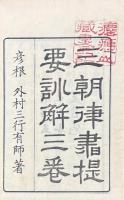 三朝律書提
要訓解三卷
彦根 外村三行有師著